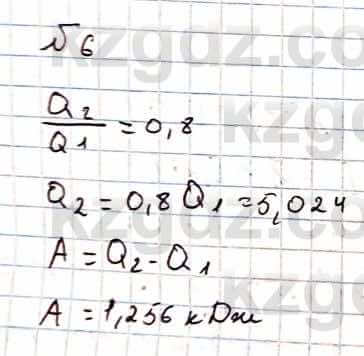 №6
Q₂/Q₁ = 0,8
Q₂ = 0,8 Q₁ = 5,024
A = Q₂ - Q₁
A = 1,256 кДж
kzgdz.com